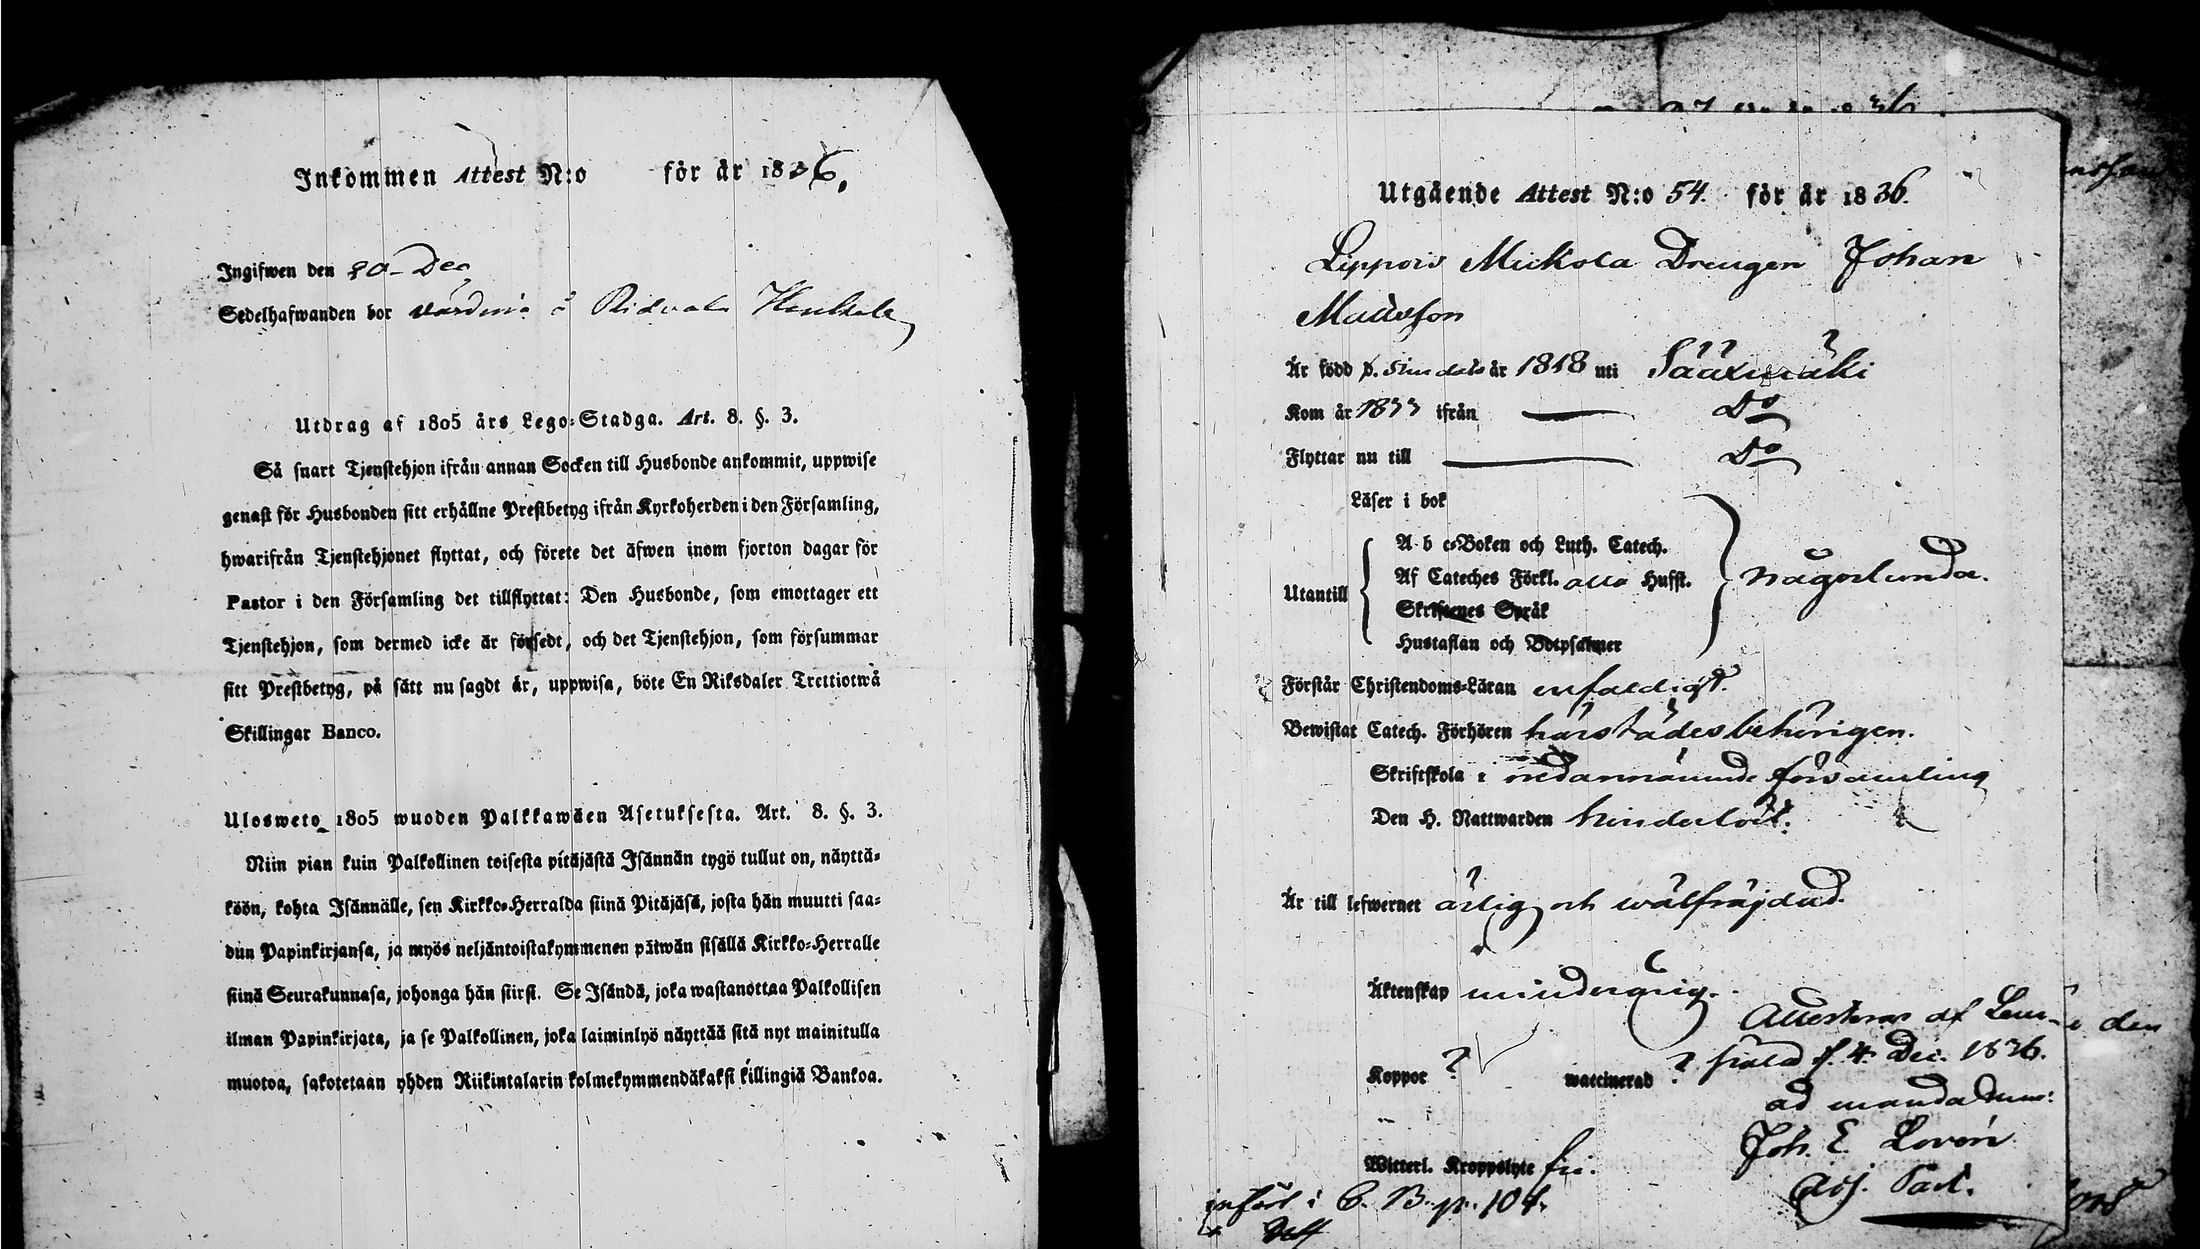 Inkommen Attest N:o för år 1836.
Ingifwen den 20 Dec
Sedelhafwanden bor å Ridvala
Utdrag af 1805 års Lego-Stadga. Art. 8. §. 3.
Så snart Tjenstehjon ifrån annan Socken till Husbonde ankommit, uppwise
genast för Husbonden sitt erhållne Prestbetyg ifrån Kyrkoherden i den Församling,
hwarifrån Tjenstehjonet flyttat, och förete det äfwen inom fjorton dagar för
Pastor i den Församling det tillflyttat: Den Husbonde, som emottager ett
Tjenstehjon, som dermed icke är försedt, och det Tjenstehjon, som försummar
sitt Prestbetyg, på sätt nu sagdt är, uppwisa, böte En Riksdaler Trettiotwå
Skillingar Banco.
Ulosweto 1805 wuoden Palkkawäen Asetuksesta. Art. 8. §. 3.
Niin pian kuin Palkollinen toisesta pitäjästä Isännän tygö tullut on, näyttä-
köön, kohta Isännälle, sen Kirkko-Herralda siinä Pitäjäsä, josta hän muutti saa-
dun Papinkirjansa, ja myös neljäntoistakymmenen päiwän sisällä Kirkko-Herralle
siinä Seurakunnasa, johonga hän siirsi. Se Isändä, joka wastanottaa Palkollisen
ilman Papinkirjata, ja se Palkollinen, joka laiminlyö näyttää sitä nyt mainitulla
muotoa, sakotetaan yhden Riikintalarin kolmekymmendäkaksi killingiä Bankoa.
Utgående Attest N:o 54. för år 1836.
Lippois Mickola Drengen Johan
Mattsson
Är född år 1818 uti Sääxmäki
Kom år 1833 ifrån Do
Flyttar nu till Do
Läser i bok
A b c-Boken och Luth. Catech.
Utantill Af Cateches Förkl. alla Hufst. någorlunda.
Skriftenes Språk
Hustaflan och Botpsalmer
Förstår Christendoms-Läran enfaldigt.
Bewistat Catech. Förhören härstädes behörigen.
Skriftskola i nedannämnde församling
Den H. Nattwarden hinderlöst.
Är till lefwernet ärlig och wälfräjdad.
Äktenskap minderårig.
Attesteras af Lem-
Koppor ? waccinerad ? påälä d. 4 Dec. 1836.
ad mandatum:
Joh. E. Lovén
Adj. Past.
Witterl. Kroppslyte fri.
införd i C. B. p. 104.